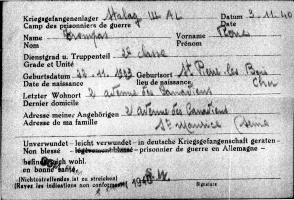 Kriegsgefangenenlager Stalag Datum 3.11.40
Camp des prisonniers de guerre Date
Name Vorname
Nom Prénom
Dienstgrad u. Truppenteil 2e classe
Grade et Unité
Geburtsdatum Geburtsort St Pierre les Bois
Date de naissance Lieu de naissance Cher
Letzter Wohnort 2 avenue des Canadiens
Dernier domicile
Adresse meiner Angehörigen 2 avenue des Canadiens
Adresse de ma famille St Maurice (Seine)
Unverwundet — leicht verwundet — in deutsche Kriegsgefangenschaft geraten —
Non blessé légèrement blessé — prisonnier de guerre en Allemagne —
befinde mich wohl.
en bonne santé.
(Nichtzutreffendes ist zu streichen)
(Rayez les indications non conformes) Signature